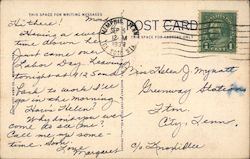 THIS SPACE FOR WRITING MESSAGES
POST CARD
THIS SPACE FOR ADDRESS ONLY
MEMPHIS, TENN.
SEP 5
12 M
1 CENT 1
Hi there!
Having a swell
time down here
Just came over
Labor Day. Leaving
tonight at 9:25 Sun.
back to work I'll
go in the morning
Have Helen!
Why don't we
come to see me?
Call me up some-
time. Love,
Margaret
Miss Helen J. Mynatt
Greenway Station
Ftn.
City, Tenn.
c/o Knoxville